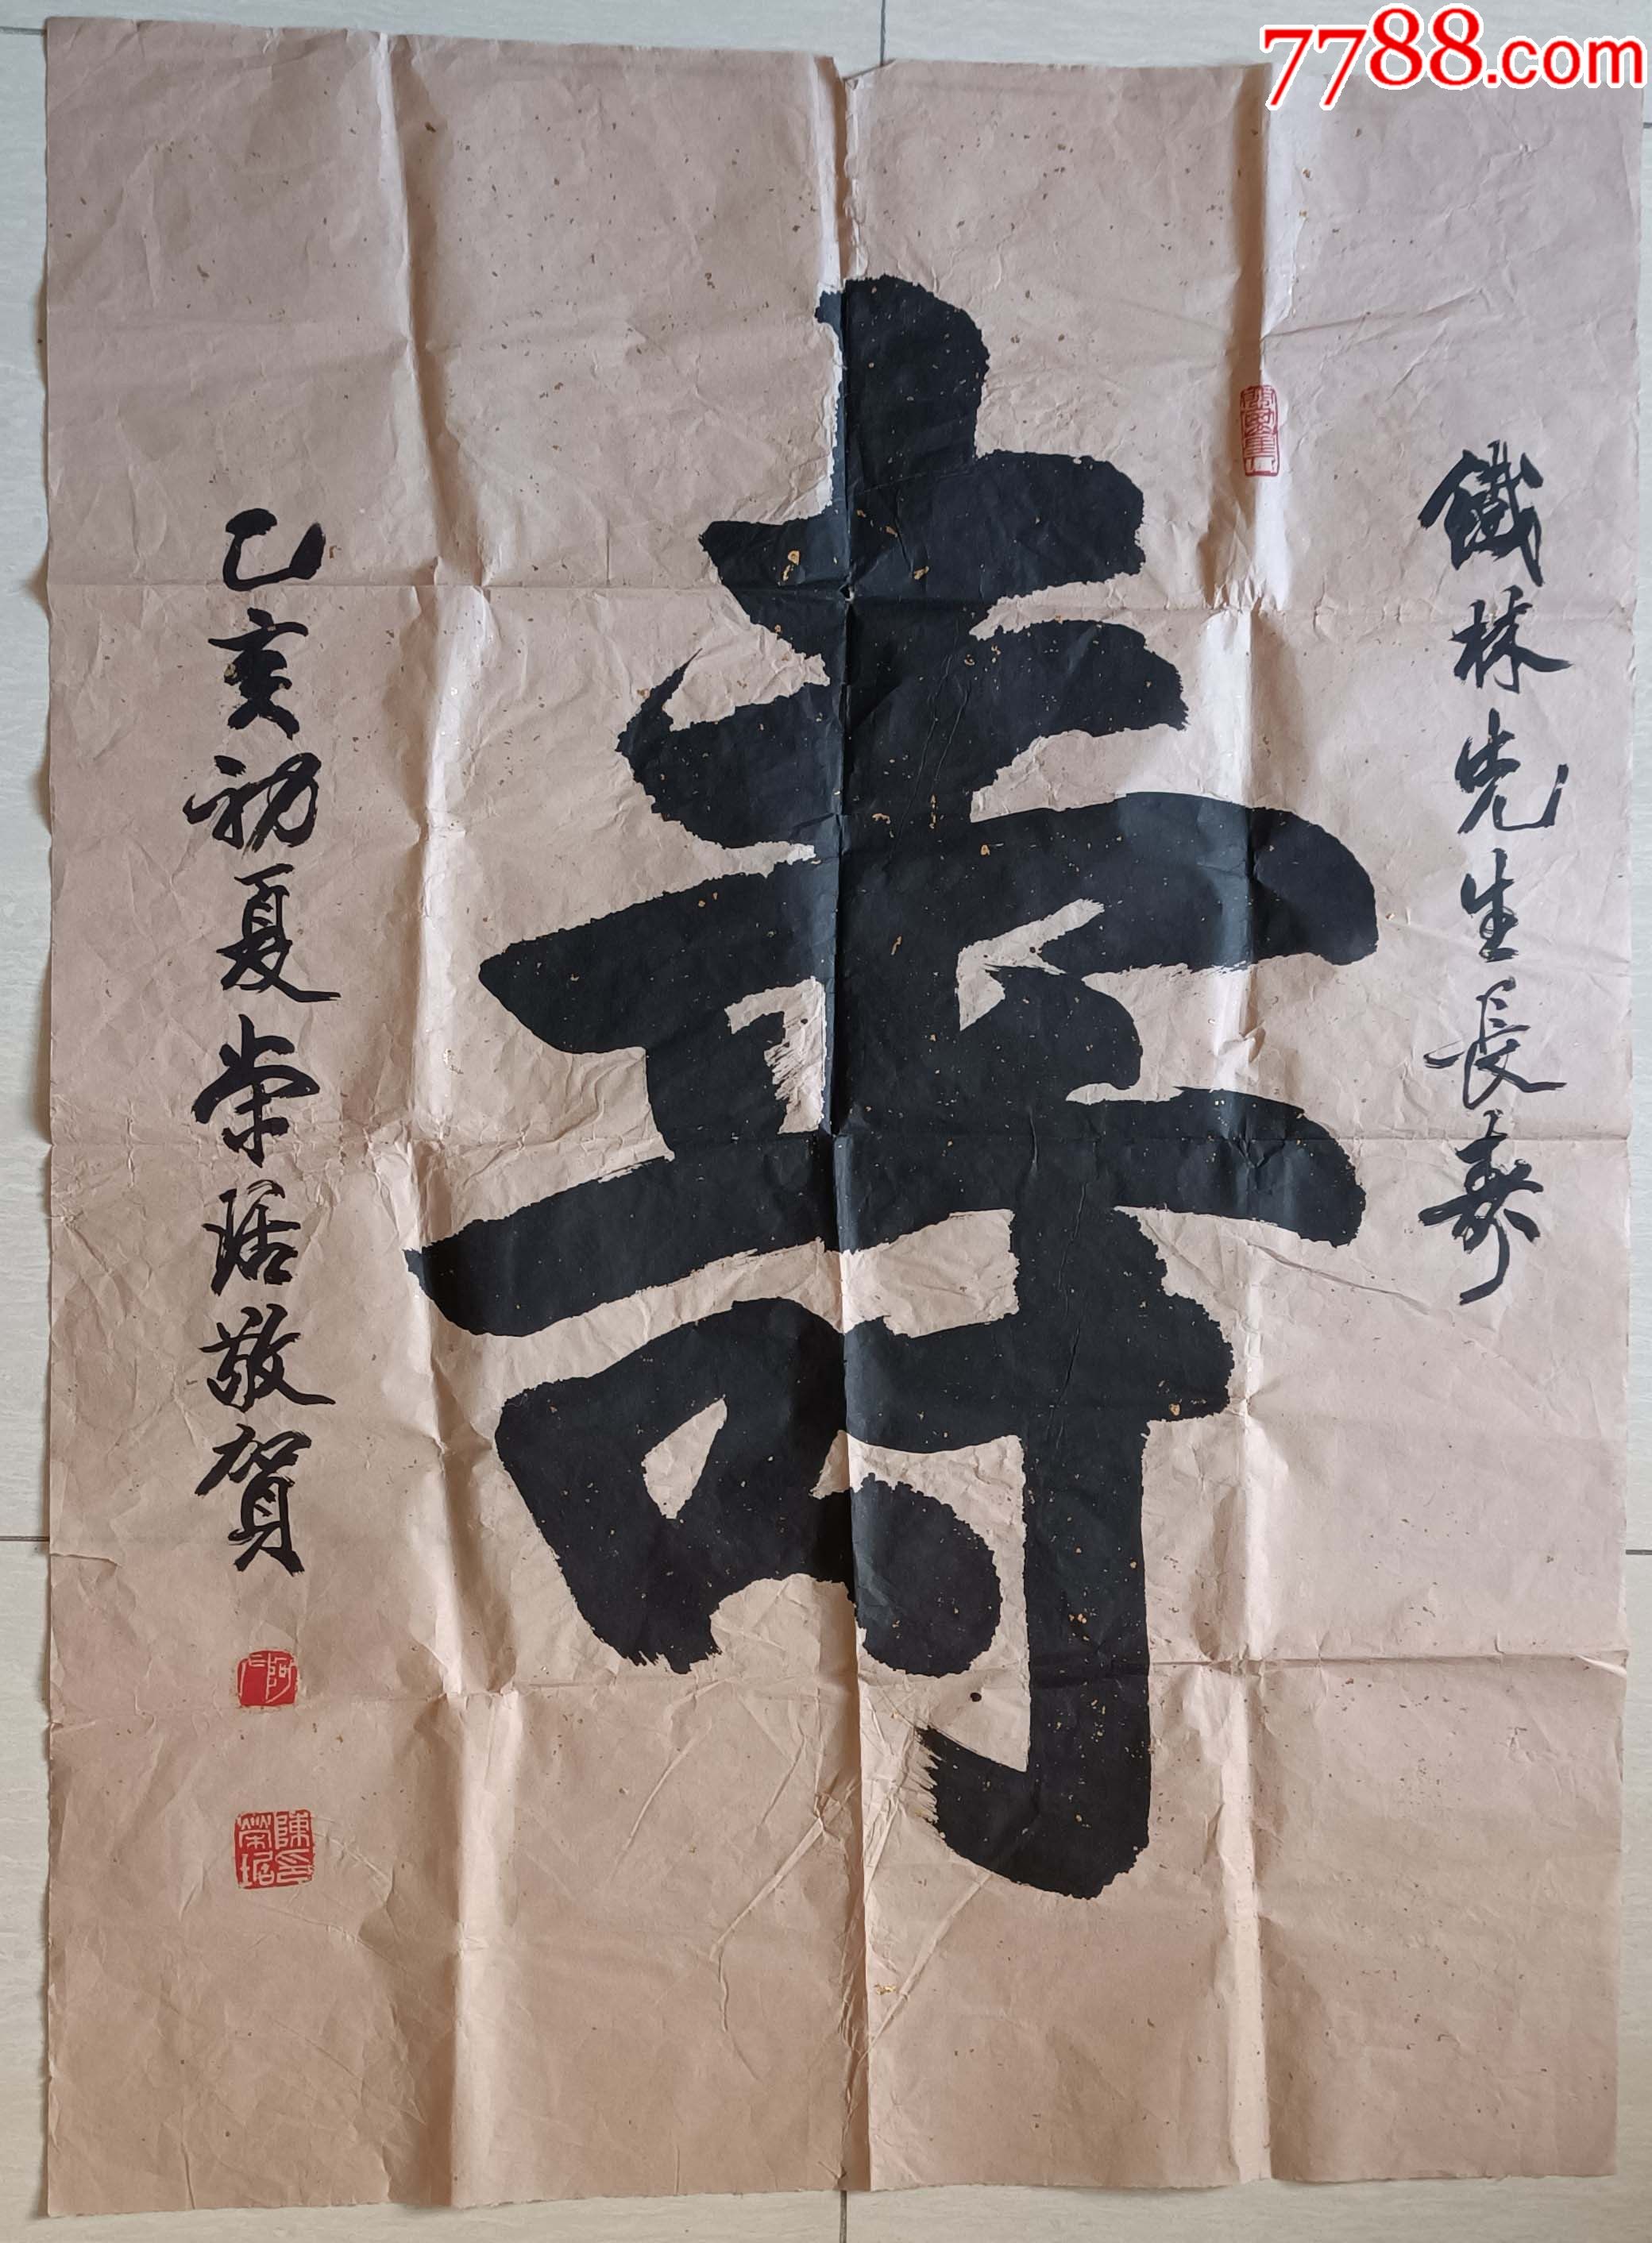 7788.com
鐵林先生長壽
壽
乙亥初夏荣琚敬賀
陳榮琚印